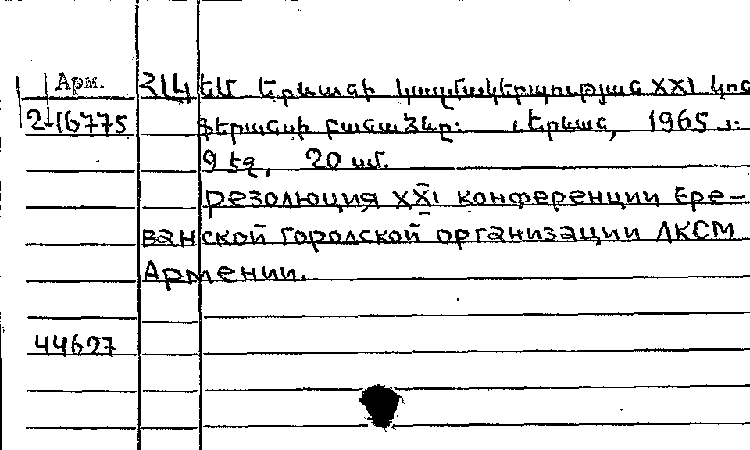 Арм. ՀԼԿ ԵՄ Երևանի կազմակերպության XXI կոն
2-16775 ֆերանսի բանաձևը: Երևան, 1965 թ.
9 էջ, 20 սմ.
Резолюция XXI конференции Ере-
ванской городской организации ЛКСМ
Армении.
44627